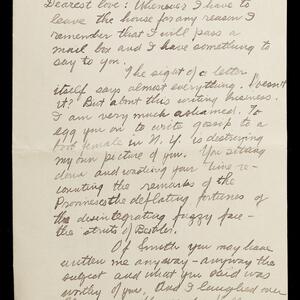 Dearest love: Whenever I have to
leave the house for any reason I
remember that I will pass a
mail box and I have something to
say to you.
The sight of a letter
itself says almost everything. Doesn't
it? But about this writing business.
I am very much ashamed. To
egg you on to write gossip to a
female in N.Y. is destroying
my own picture of you. You sitting
down and wasting your time re-
counting the remarks of the
the deflating fortunes of
the disintegrating fuzzy face-
the struts of
Of Smith you may have
written me anyway - anyway the
subject and what you said was
worthy of you. And I laughed over